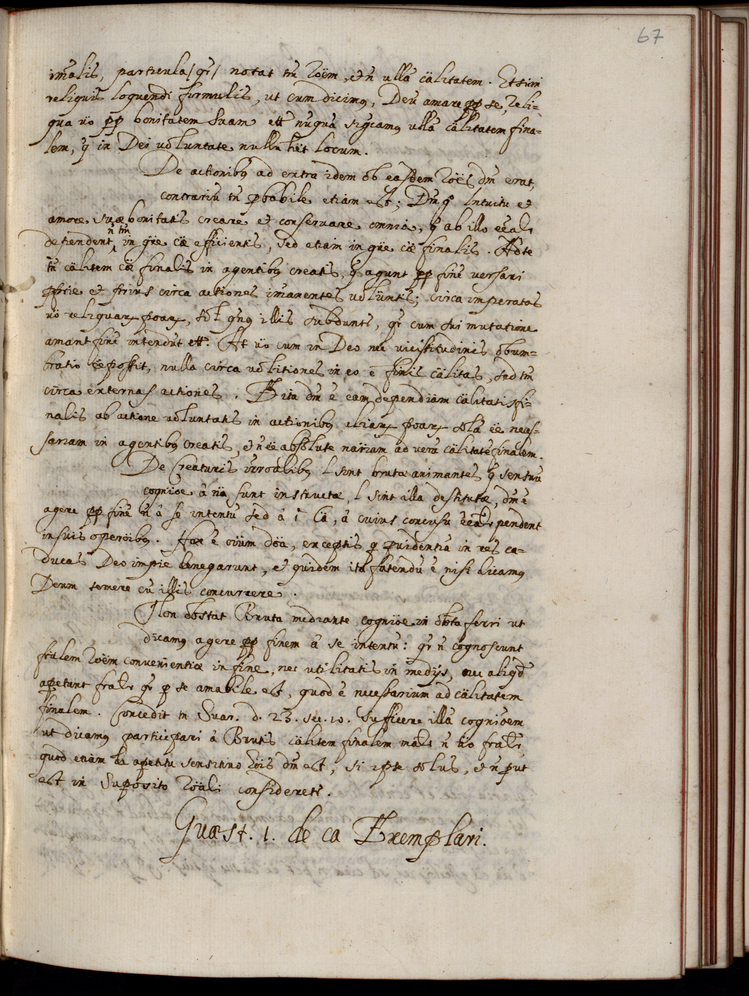 67
imalis, particula (qr) notat tm rõem, et n̄ ulla cälitatem. Et sum
reliquis loquendi formulis, ut cum dicimq, Deū amare pp se, reli-
qua vo pp bonitatem suam ett nuqua sigcamq ulla cälitatem fina-
lem, q in Dei voluntate nulla hēt locum.
De actionibq ad extra idem ob easdem rõis dm̄ erat,
contrariu tn pbabile etiam est; Dm̄ q Intuitu et
amore suæ bonitatis creare et conservare omnia, q ab illo
dependent, n̄ tm in gñe cæ efficientis, sed etiam in gñe cæ finalis.
tn cälitem cæ finalis in agentibq creatis, q agunt pp finē versari
pprie et prius circa actiones imanentes volūntis; circa imperatas
vo reliquarum poarum, illis subsunt, qr cum sui mutatione
amant finē intendūt ett. At vo cum in Deo nec vicissitudinis obum-
bratio eē possit, nulla circa volitiones in eo ē finis cälitas, sed tm
circa externas actiones. dm̄ ē eam dependiam cälitatis fi-
nalis ab actione voluntatis in actionibq aliarum poarum sola eē neces-
sariam in agentibq creatis, et n̄ eē absolute nariam ad vera cälitatē finalem.
De Creaturis irrõalibq l sint bruta animantes q sensuū
cognioe a nā sunt instructa, l sint illa destitutæ, dm̄ ē
agere pp finē n̄ a se intentū sed a i Ca, a cuius concursu pendent
in suis operõibq. Hæc ē oium dõa, exceptis q pvidentia in res ca-
ducas Deo impie denegarunt, et quidem ita fatendū ē nisi dicamq
Deum temere cū illis concurrere.
Non obstat Bruta mediante cognioe in obta ferri ut
dicamq agere pp finem a se intentū: qr n̄ cognoscunt
fralem rõem convenientiæ in fine, nec utilitatis in medijs, nec aliqd
apetunt fralr qr p se amabile est, quod ē necessarium ad cälitatem
finalem. Concedit tn Suar. d. 23. sec. 10. sufficere illa cognioem
ut dicamq participari a Brutis cälitem finalem malr n̄ vo fralr
quod etiam de apetitu sensitivo hōis dm̄ est, si ipse solus, et n̄ put
est in Supposito rõali consideretr.
Quæst. 1. de ca Exemplari.